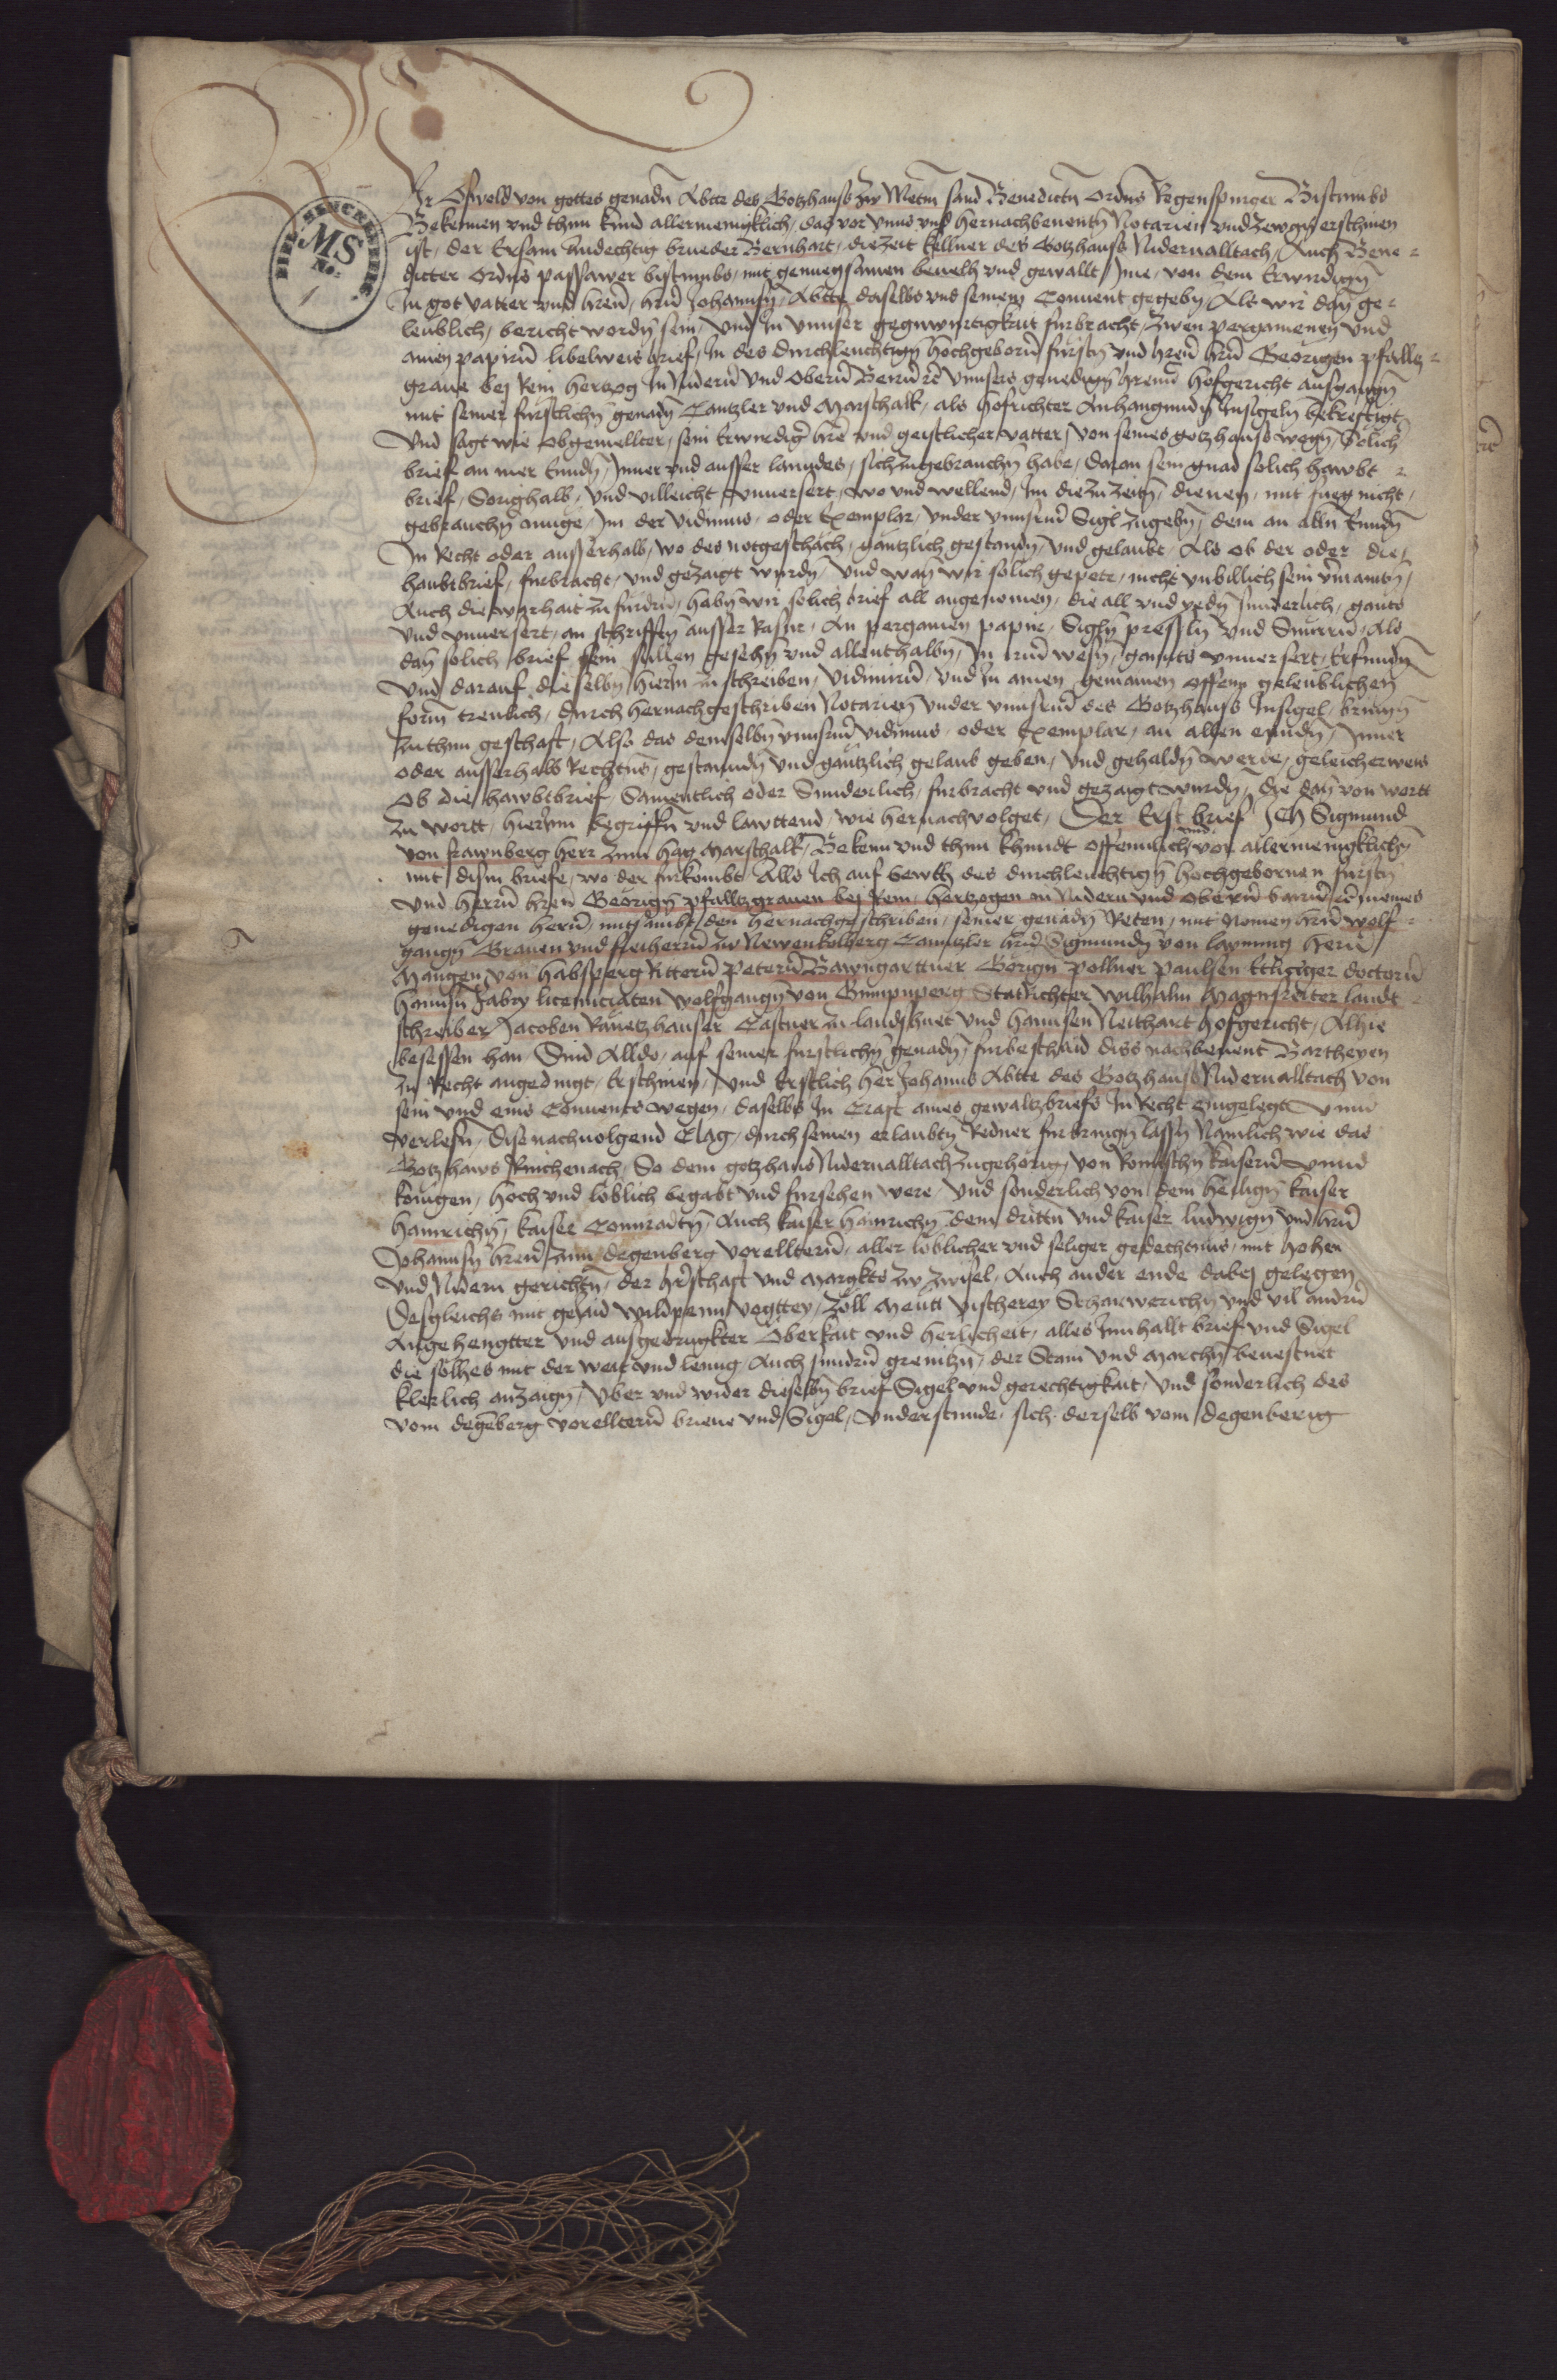 Wir Oswold von gottes genadn̄ Abtte des Gotzhaus zw Metn̄ sand Benedictn̄ Ordn̄s Regenspurger Bistumbs
Bekennen vnd thun kund allermeniklich, das vor vnns vnd hernachbenentn̄ Notarien vnd zewgn̄ erschinen
ist, der Ersam Andechtig brueder Bernhart, die zeit kellner des Gotzhauss Nidernalltach, Auch Bene-
dicter Ordn̄s passawer bistumbs, mit genuegsamen beuelh vnd gewallt, Jme, von dem Erwirdign̄
In got vatter vnd hren̄, hrn̄ Johannsn̄, Abtte daselbs vnd seinem Conuent gegebn̄, Als wir dan̄ ge-
leublich, bericht wordn̄ sein, Vnd In vnnser gegnwurtigkait furbracht, zwen pergamenen vnd
ainen papirn̄ libelweis brief, In des durchleuchtign̄ hochgeborn̄ furstn̄ vnd hren̄ hrn̄ Georigen pfalltz-
graue bej Rein hertzog In Nidern̄ vnd Obern̄ Beirn̄ rc̄ vnnsers genedign̄ hrenn̄ hofgericht ausgangn̄
mit seiner furstlichn̄ genadn̄ Cantzler vnd Marschalk, als hofrichter Anhangundn̄ Insigeln̄ bekreftigt,
Vnd sagt wie obgemellter, sein Erwirdiḡ hre̅ vnd geistlicher vatter, von seines gotzhauss wegn̄, solich
brief an mer Enndn̄, Inner vnd ausser lanndes, sich zugebrauchn̄ habe, daran sein gnad solich hawbt-
brief, Sorighalb, vnd villeicht vnuersert, wo vnd wellend, Im die zu zeitn̄, dienen, mit fueg nicht,
gebrauchn̄ muge, Im der vidimus, oder Exemplar, vnder vnnserm̄ Sigl zugebn̄, dem an alln̄ Enndn̄
In Recht oder ausserhalb, wo des notgeschach, gantzlich gestandn̄, vnd gelaubt, Als ob der oder die,
haubtbrief, furbracht, vnd gezaigt wurdn̄, Vnd wan̄ wir solich gepete, nicht vnbillich sein vermaintn̄,
Auch die warhait zu furdrn̄, habn̄ wir solich brief all angenomen, die all vnd yedn̄ sunderlich, gants
vnd vnuersert, an schrifftn̄ ausser Rasur, An pergamen papire, Sigln̄ pressln̄ vnd Snurrn̄, Als
dan̄ solich brief sein sullen gesehn̄ vnd allenthalbn̄, In irm̄ wesn̄, gannts vnuersert, Erfundn̄
Vnd darauf dieselbn̄ hierin zuschreiben, Vidimirn̄, vnd In ainen gemainen offenn geleublichen
form treulich, durch hernachgeschriben Notarien vnder vnnserm̄ des Gotzhauss Insigel, bringn̄
zuthun geschaft, Also das demselbn̄ vnnserm̄ vidimus, oder Exemplar, an allen enndn̄, Inner
oder ausserhalb Rechtn̄s, gestanndn̄ vnd gantzlich gelaub geben, Vnd gehaldn̄ werde, geleicherweis
ob die hawbtbrief, Samentlich oder Sunderlich, furbracht vnd gezaigt wurdn̄, die dan̄ von wort
zu wortt, hierInn begriffn̄ vnd lawttend, wie hernachvolget, Der Erst brief Ich Sigmund
von frawnberg herr zum hag Marschalk, Bekenn vnd thun khundt offennlich vnd vor allermenigklichn̄
mit disem briefe, wo der furkombt Alls Ich auf hewtt des durchleuchtign̄ hochgebornen furstn̄
vnd herrn̄ hren̄ Georign̄ pfalltzgrauen bej Rein, hertzogen in Nidern vnd Obern̄ bairn̄ rc̄ meines
genedigen herrn̄, mitsambt, den hernachgeschriben, seiner genadn̄ Reten, mit Nomen hrn̄ wolf-
gangn̄ Grauen vnd freiherrn̄ zw Newenkolberg Canntzler hrn̄ Sigmundn̄ von layming hern̄
Mangen von habsperg Rittern̄ petern̄ Bawngarttner Gorign̄ pollner paulsen Ettlinger doctorn̄
hannsn̄ Jabry licenciaten wolfgangn̄ von Gumpnperg Statrichter wilhalm Magnsreiter landt-
schreiber Jacoben Rauetzhauser Castner zu landshuet vnd hannsen Neithart hofgericht, Alhie
besessen han, Sind Alldo, auf seiner furstlichn̄ genadn̄, furbeschaid diss nachbenent Bartheyen
zu Recht angedingt, Erschinen, Vnd Erstlich her Johanns Abtte des Gotzhauss Nidernalltach von
sein vnd eins Conuents wegen, daselbs In Craft aines gewaltzbriefs In Recht eingelegt vnnd
verlesn̄, dise nachuolgend Clag, durch seinen erlaubtn̄ Redner furbringn̄ lassn̄ Namlich wie das
Gotzhaws Rinchenach, So dem gotzhaus Nidernalltach zugehorign̄, von Romischn̄ kaisern̄ vnnd
konigen, hoch vnd loblich begabt vnd fursehen were, Vnd sonderlich von dem heilign̄ kaiser
hainrichn̄, kaiser Connradtn̄, Auch kaiser hainrichn̄ dem drittn̄ vnd kaiser ludwign̄ vnd hrn̄
Johannsn̄ hren̄ zum degenberg vorelltern̄, aller loblicher vnd seliger gedechtnus, mit hohen
vnd Nidern gerichtn̄, der hr̄schaft vnd Margkts zw zwisel, Auch ander ende dabej gelegen
Desgleichs mit gelaid wildpenn vogttey, zoll Meutt vischerey Scharwerichn̄ vnd vil andrn̄
Angehengtter vnd ausgedrugkter Oberkait vnd herlicheit, alles Innhallt brief vnd Sigel
die solhes mit der weit vnd lenng Auch sundrn̄ grenitzn̄, der Stain vnd Marchn̄ beuestnet
klerlich anzaign̄, Vber vnd wider dieselbn̄ brief Sigel vnd gerechtigkait, Vnd sonderlich des
vom degeberg vorelltern̄ briue vnd Sigel, Vnderstunde, sich derselb vom degenberig
MS
No:
1